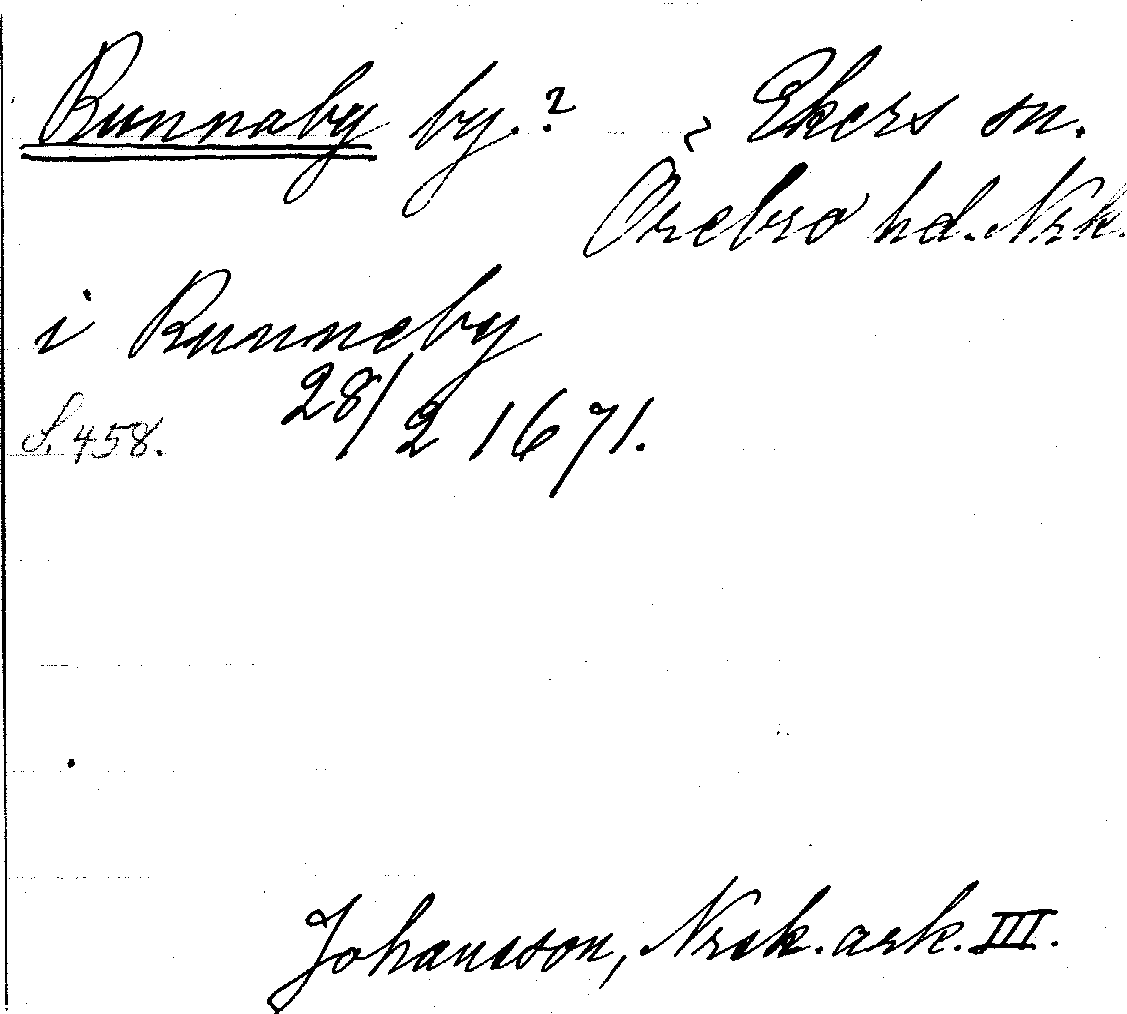 Runnaby by.? Ekers sn.
Örebro hd. Nrk.
i Runneby
28/2 1671.
S. 458.
Johansson, Nrck. ark. III.